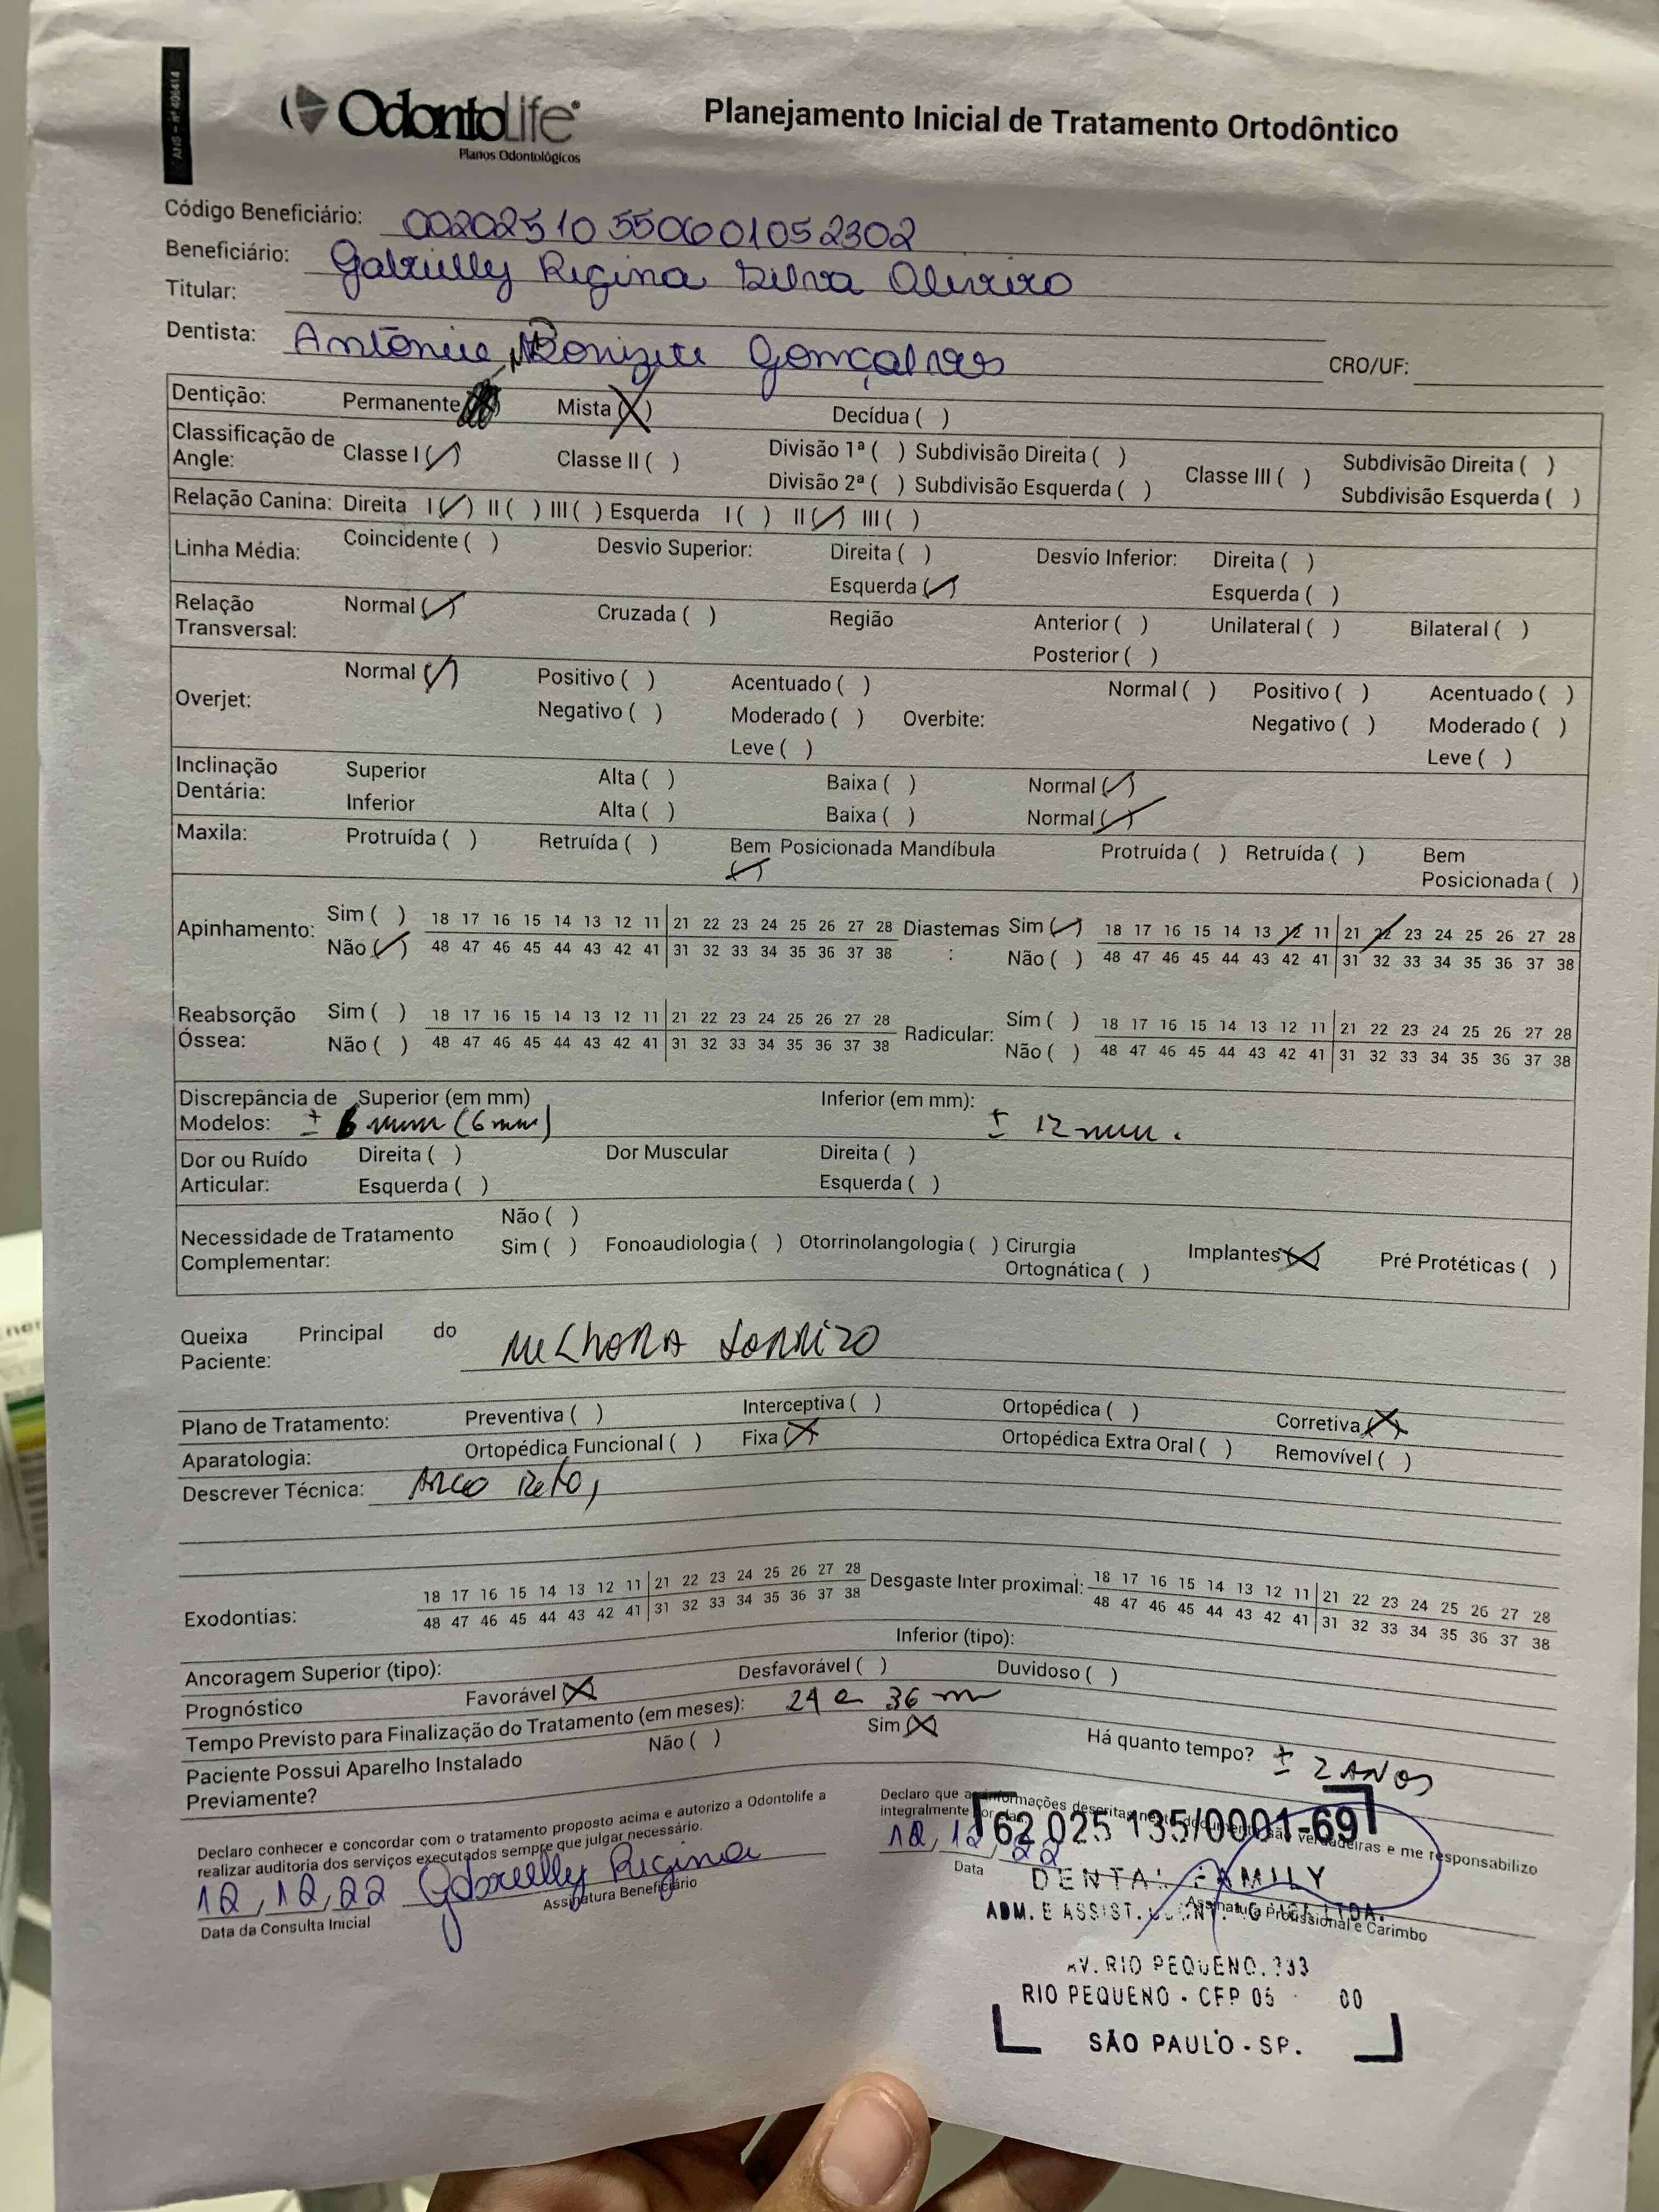 ANS - nº 406414
OdontoLife®
Planos Odontológicos
Planejamento Inicial de Tratamento Ortodôntico
Código Beneficiário: 00202510550601052302
Beneficiário: Gabrielly Regina Silva Oliveira
Titular:
Dentista: Antônio Donizete Gonçalves CRO/UF:
Dentição: Permanente Mista (X) Decídua ( )
Classificação de Angle: Classe I (/) Classe II ( ) Divisão 1ª ( ) Subdivisão Direita ( ) Divisão 2ª ( ) Subdivisão Esquerda ( ) Classe III ( ) Subdivisão Direita ( ) Subdivisão Esquerda ( )
Relação Canina: Direita I (/) II ( ) III ( ) Esquerda I ( ) II (/) III ( )
Linha Média: Coincidente ( ) Desvio Superior: Direita ( ) Esquerda (/) Desvio Inferior: Direita ( ) Esquerda ( )
Relação Transversal: Normal (/) Cruzada ( ) Região Anterior ( ) Posterior ( ) Unilateral ( ) Bilateral ( )
Overjet: Normal (/) Positivo ( ) Negativo ( ) Acentuado ( ) Moderado ( ) Leve ( ) Overbite: Normal ( ) Positivo ( ) Negativo ( ) Acentuado ( ) Moderado ( ) Leve ( )
Inclinação Dentária: Superior Alta ( ) Baixa ( ) Normal (/)
Inferior Alta ( ) Baixa ( ) Normal (/)
Maxila: Protruída ( ) Retruída ( ) Bem Posicionada (/) Mandíbula Protruída ( ) Retruída ( ) Bem Posicionada ( )
Apinhamento: Sim ( ) 18 17 16 15 14 13 12 11 21 22 23 24 25 26 27 28 Diastemas : Sim (/) 18 17 16 15 14 13 12 11 21 22 23 24 25 26 27 28
Não (/) 48 47 46 45 44 43 42 41 31 32 33 34 35 36 37 38 Não ( ) 48 47 46 45 44 43 42 41 31 32 33 34 35 36 37 38
Reabsorção Óssea: Sim ( ) 18 17 16 15 14 13 12 11 21 22 23 24 25 26 27 28 Radicular: Sim ( ) 18 17 16 15 14 13 12 11 21 22 23 24 25 26 27 28
Não ( ) 48 47 46 45 44 43 42 41 31 32 33 34 35 36 37 38 Não ( ) 48 47 46 45 44 43 42 41 31 32 33 34 35 36 37 38
Discrepância de Modelos: Superior (em mm) ± 6 mm (6 mm) Inferior (em mm): ± 12 mm.
Dor ou Ruído Articular: Direita ( ) Esquerda ( ) Dor Muscular Direita ( ) Esquerda ( )
Necessidade de Tratamento Complementar: Não ( ) Sim ( ) Fonoaudiologia ( ) Otorrinolangologia ( ) Cirurgia Ortognática ( ) Implantes (X) Pré Protéticas ( )
Queixa Principal do Paciente: MELHORA SORRIZO
Plano de Tratamento: Preventiva ( ) Interceptiva ( ) Ortopédica ( ) Corretiva (X)
Aparatologia: Ortopédica Funcional ( ) Fixa (X) Ortopédica Extra Oral ( ) Removível ( )
Descrever Técnica: Arco Reto,
Exodontias: 18 17 16 15 14 13 12 11 21 22 23 24 25 26 27 28 Desgaste Inter proximal: 18 17 16 15 14 13 12 11 21 22 23 24 25 26 27 28
48 47 46 45 44 43 42 41 31 32 33 34 35 36 37 38 48 47 46 45 44 43 42 41 31 32 33 34 35 36 37 38
Ancoragem Superior (tipo): Inferior (tipo):
Prognóstico Favorável (X) Desfavorável ( ) Duvidoso ( )
Tempo Previsto para Finalização do Tratamento (em meses): 24 a 36 m
Paciente Possui Aparelho Instalado Previamente? Não ( ) Sim (X) Há quanto tempo? ± 2 ANOS
Declaro conhecer e concordar com o tratamento proposto acima e autorizo a Odontolife a
realizar auditoria dos serviços executados sempre que julgar necessário.
12,12,22 Gabrielly Regina
Data da Consulta Inicial Assinatura Beneficiário
Declaro que as informações descritas neste documento são verdadeiras e me responsabilizo
integralmente por
12, 12, 22
Data
Assinatura Profissional e Carimbo
62 025 135/0001-69
DENTAL FAMILY
ADM. E ASSIST. LTDA.
AV. RIO PEQUENO,
RIO PEQUENO - CEP 05 00
SÃO PAULO - SP.